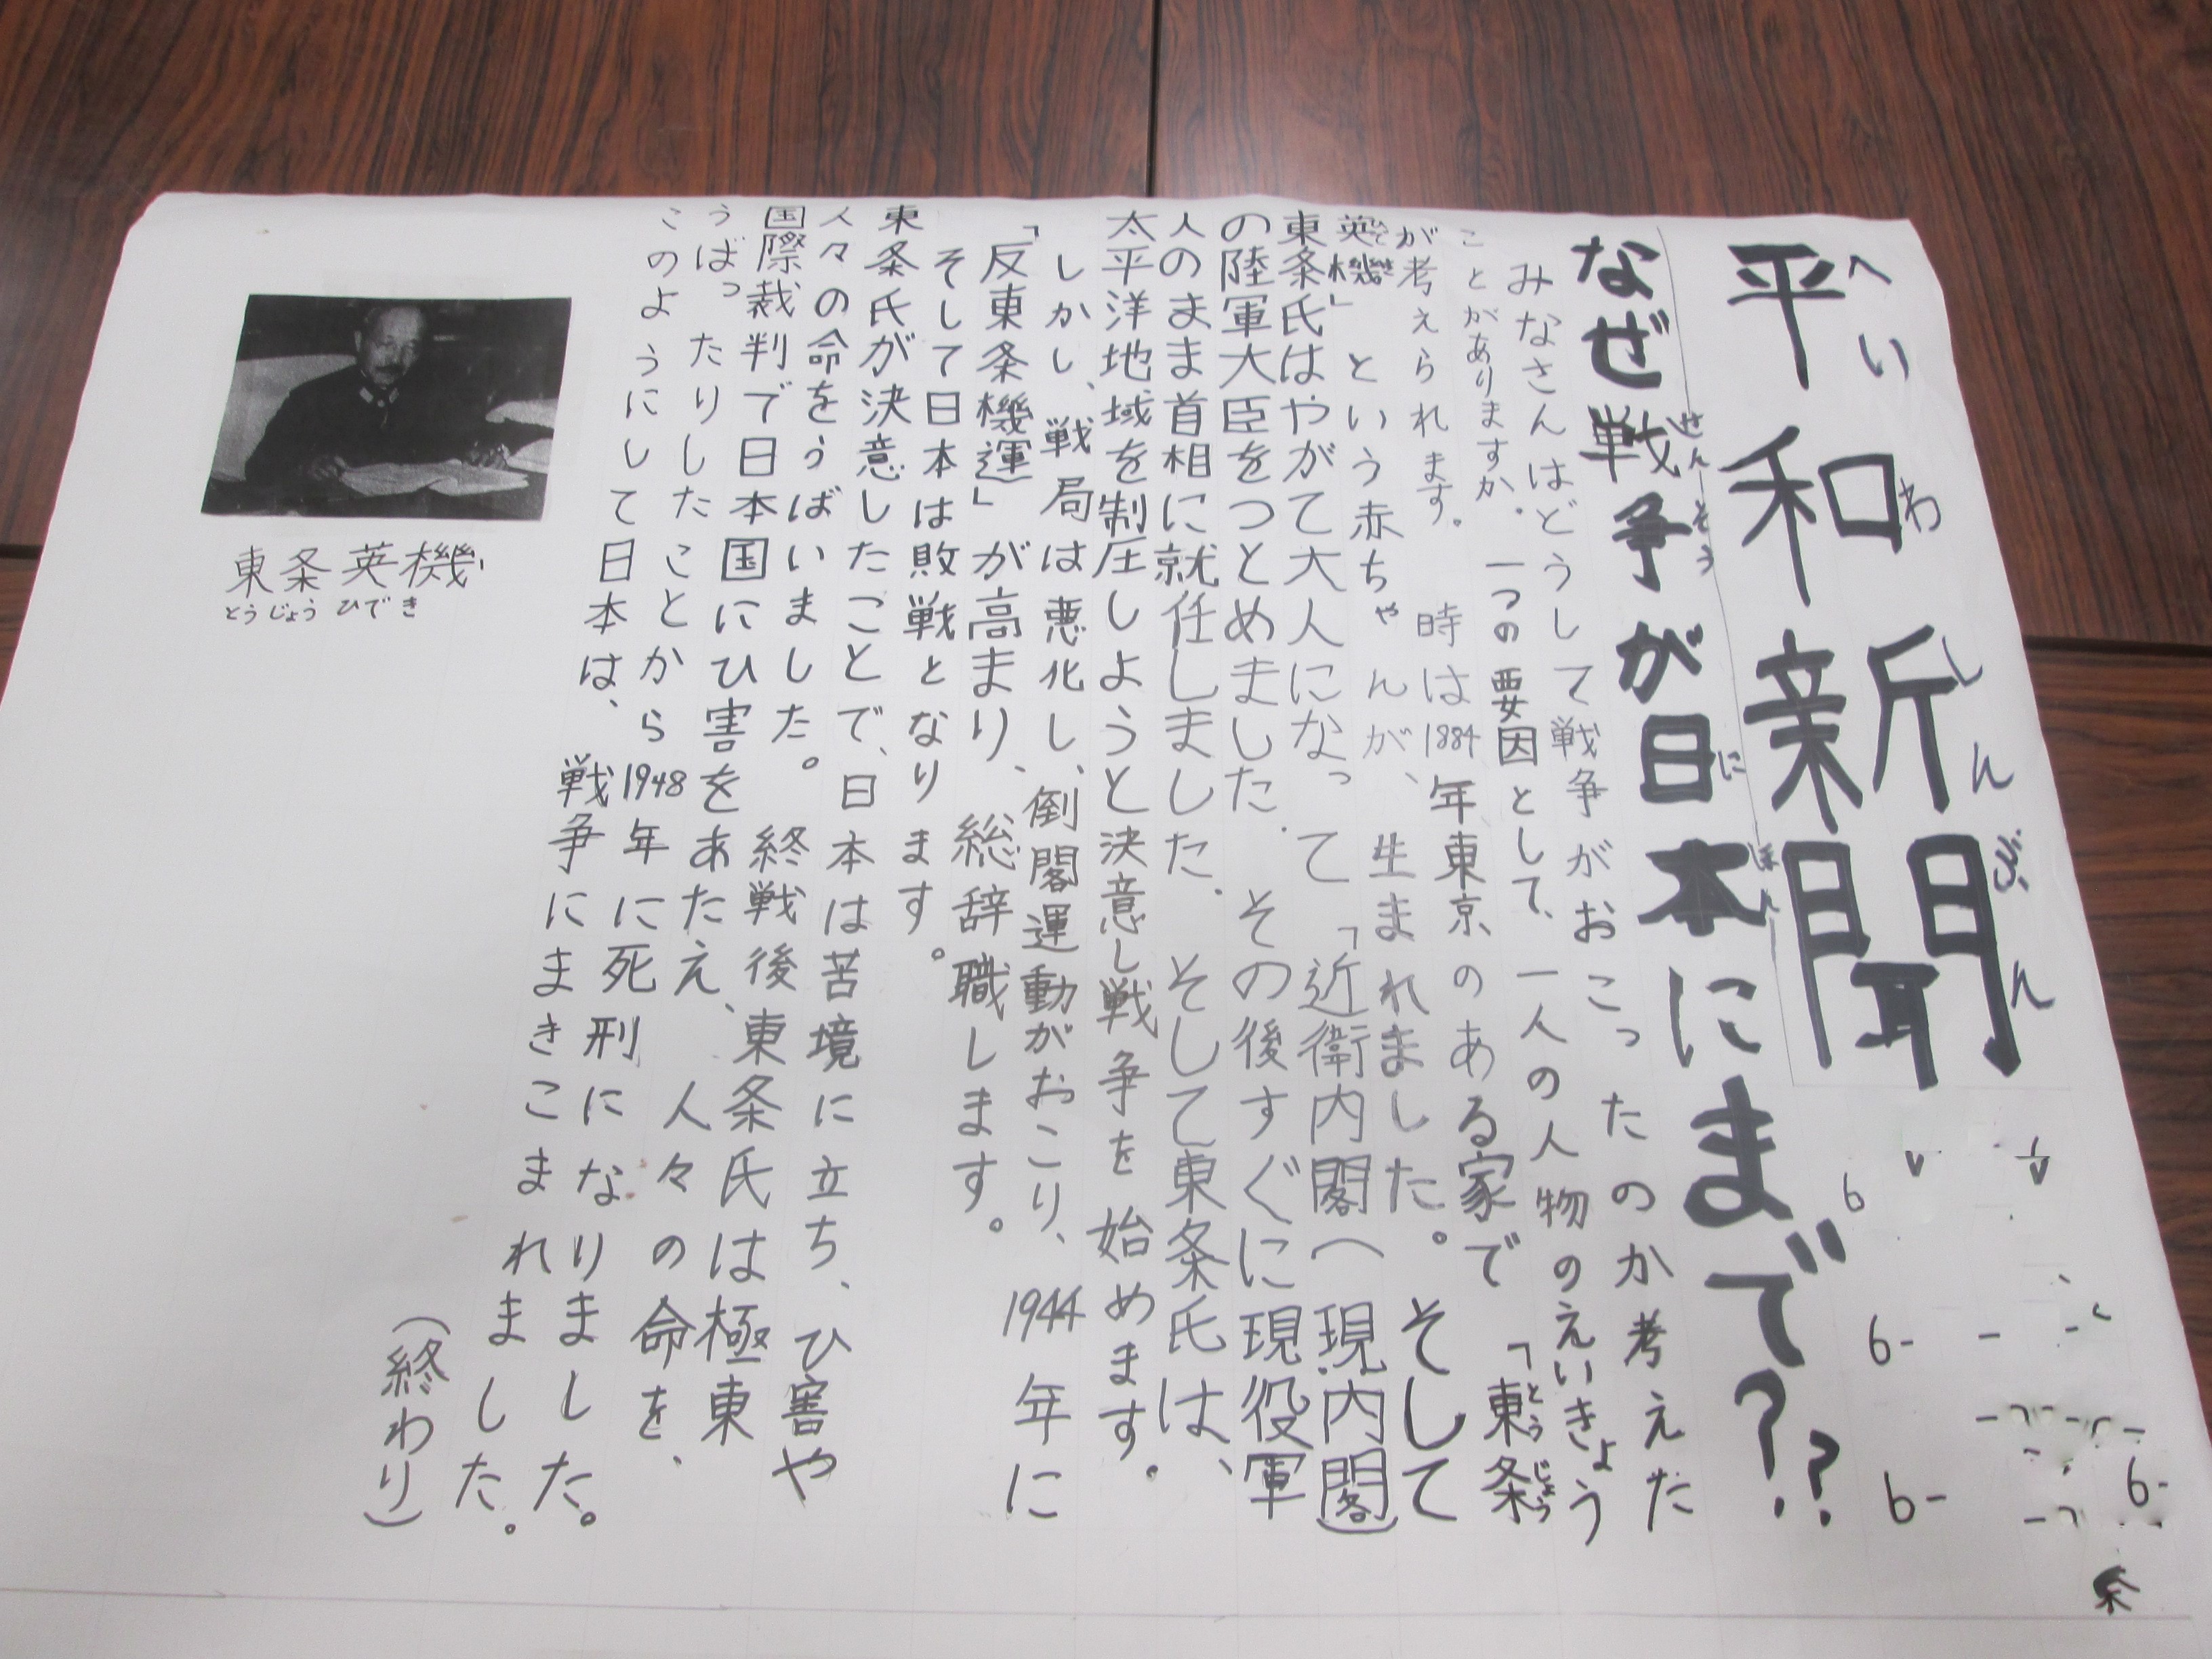 平和新聞
へいわしんぶん
なぜ戦争が日本にまで??
せんーそう にほん
みなさんはどうして戦争がおこったのか考えた
ことがありますか。一つの要因として、一人の人物のえいきょう
が考えられます。 時は1884年東京のある家で「東条
とうじょう
英機」という赤ちゃんが、生まれました。そして
ひでき
東条氏はやがて大人になって「近衛内閣(現内閣)
の陸軍大臣をつとめました。その後すぐに現役軍
人のまま首相に就任しました。そして東条氏は、
太平洋地域を制圧しようと決意し戦争を始めます。
しかし、戦局は悪化し、倒閣運動がおこり、1944年に
「反東条機運」が高まり、総辞職します。
そして日本は敗戦となります。
東条氏が決意したことで、日本は苦境に立ち、ひ害や
人々の命をうばいました。終戦後東条氏は極東
国際裁判で日本国にひ害をあたえ、人々の命を、
うばったりしたことから1948年に死刑になりました。
このようにして日本は、戦争にまきこまれました。
(終わり)
東条英機
とうじょうひでき